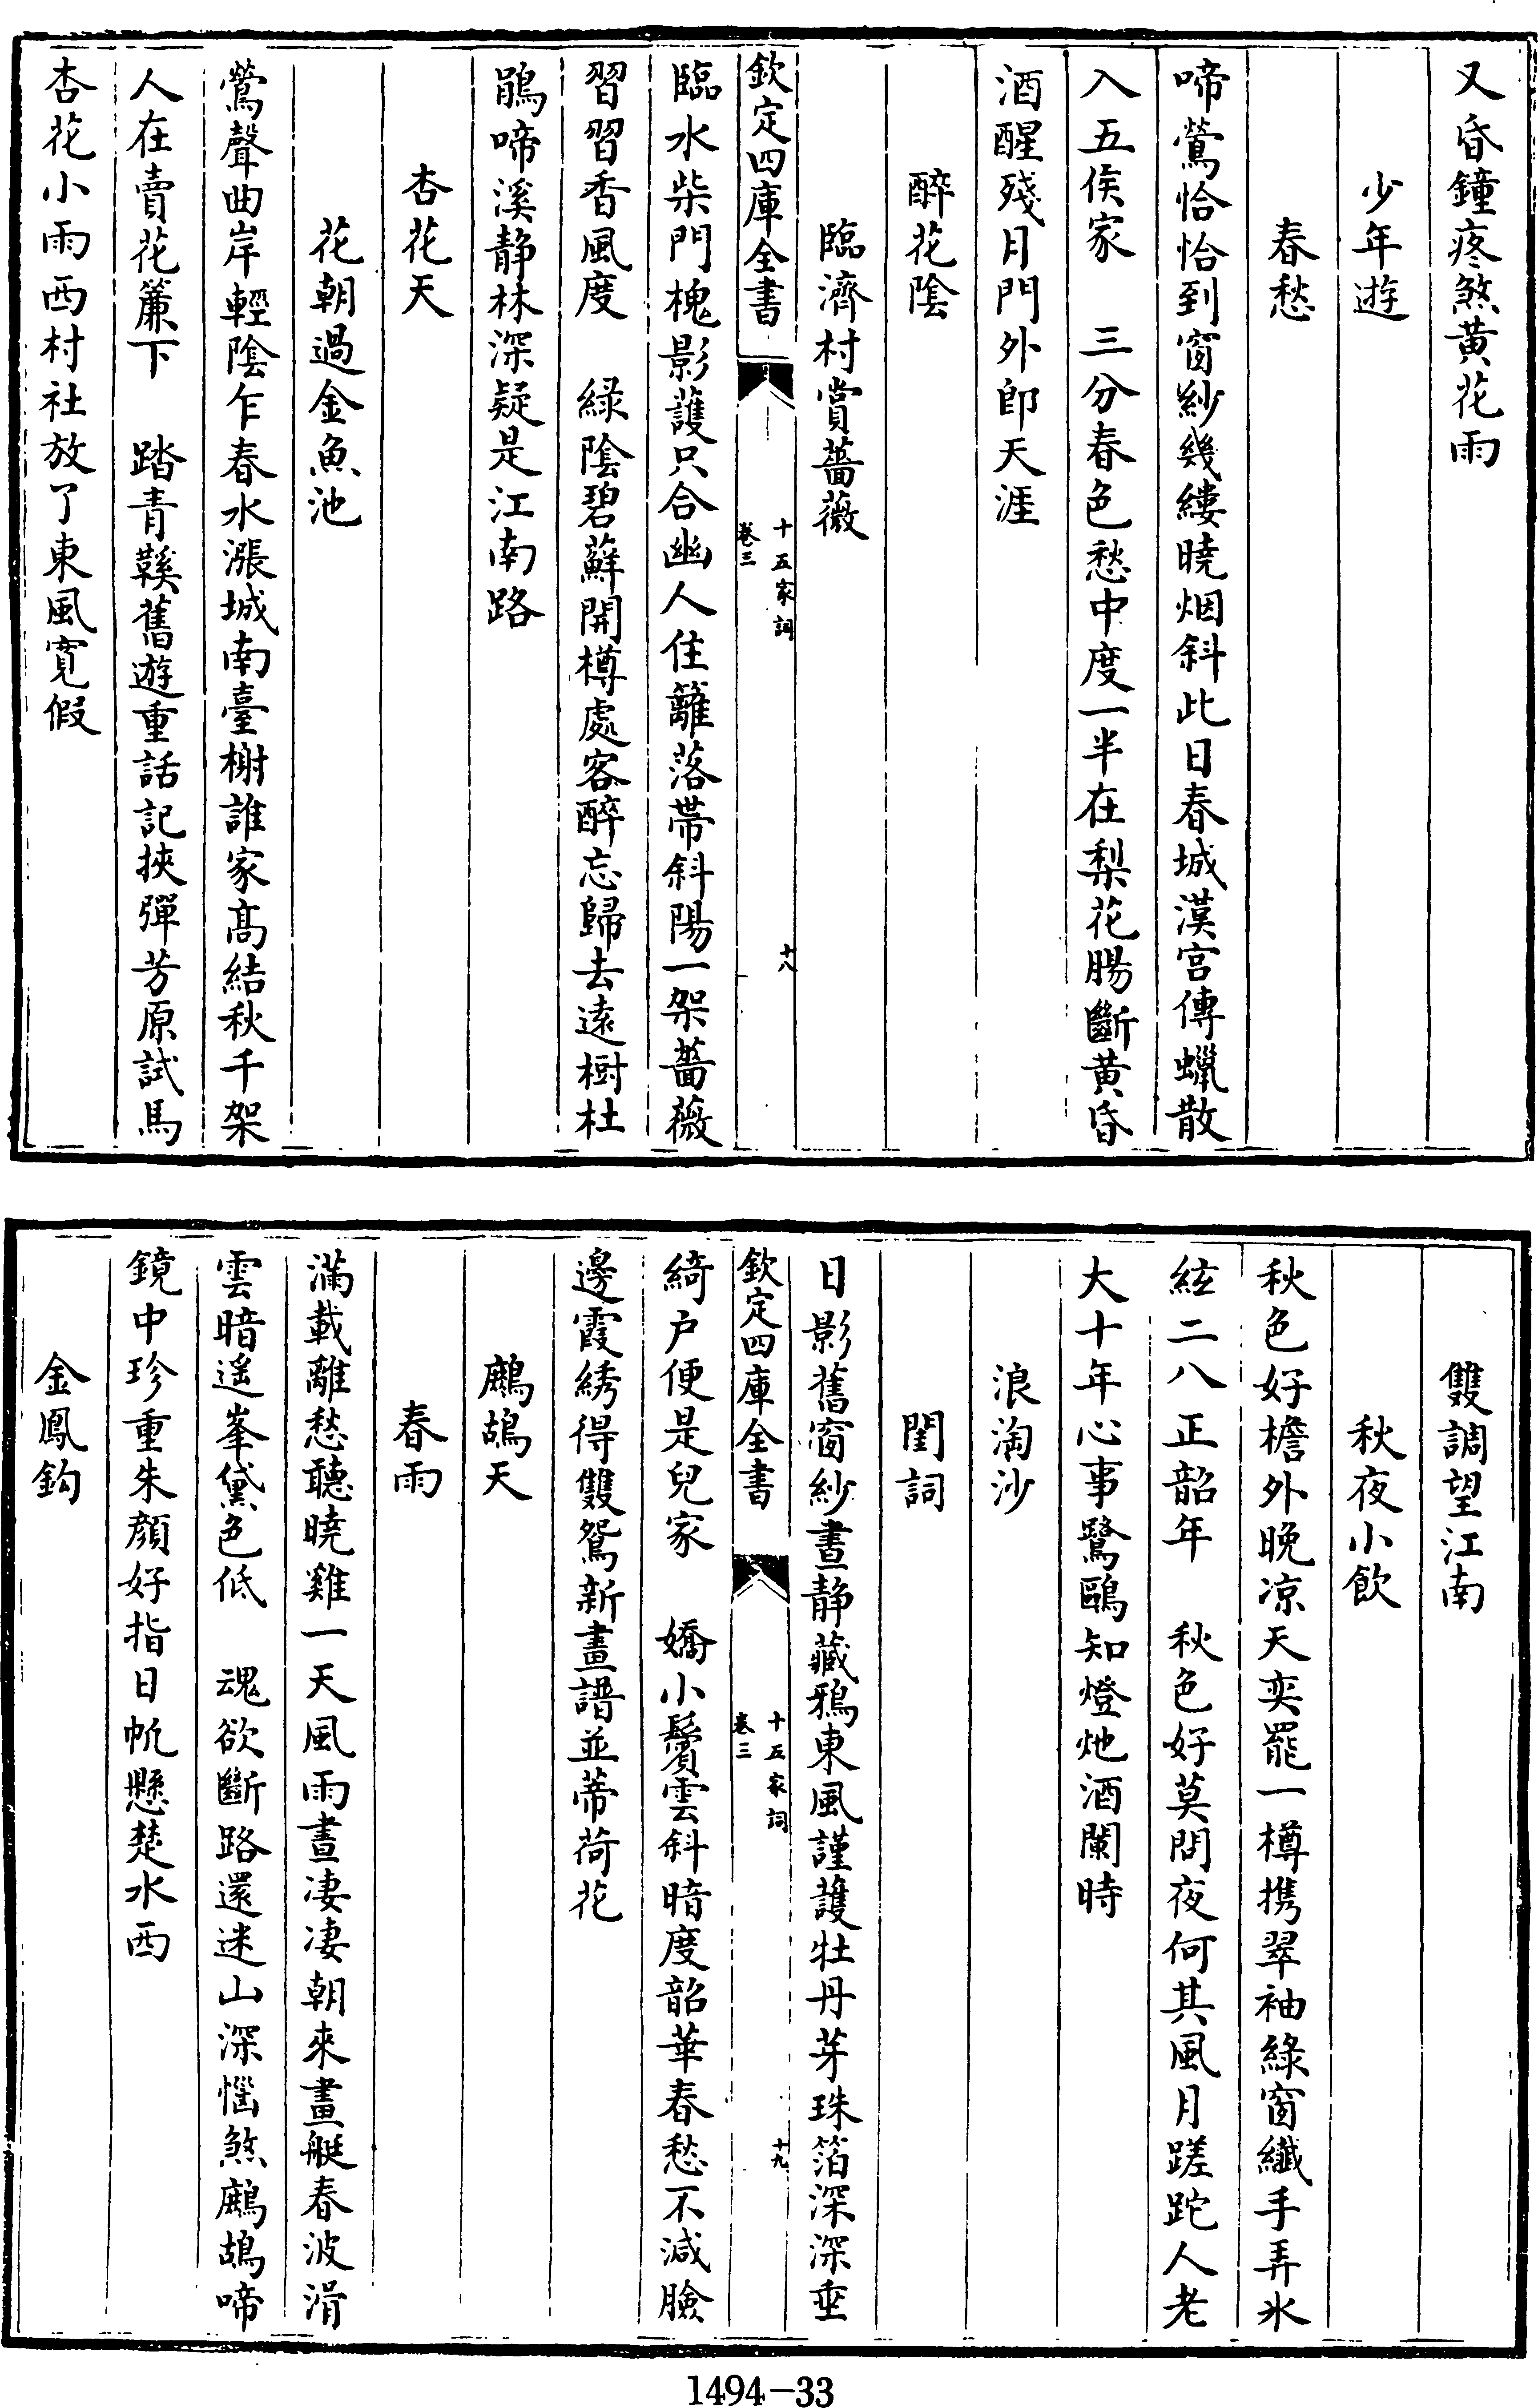 又昏鐘疼煞黄花雨
少年遊
春愁
啼鶯恰恰到窗紗幾縷曉烟斜此日春城漢宫傳蠟散
入五侯家　三分春色愁中度一半在梨花腸斷黄昏
酒醒殘月門外即天涯
醉花陰
臨濟村賞薔薇
欽定四庫全書
十五家詞
卷三
十八
臨水柴門槐影䕶只合幽人住籬落帶斜陽一架薔薇
習習香風度　綠陰碧蘚開樽處客醉忘歸去遠樹杜
鵑啼溪静林深疑是江南路
杏花天
花朝過金魚池
鶯聲曲岸輕陰乍春水漲城南臺榭誰家髙結秋千架
人在賣花簾下　踏青鞵舊遊重話記挾彈芳原試馬
杏花小雨西村社放了東風寛假
雙調望江南
秋夜小飲
秋色好檐外晚凉天奕罷一樽携翠袖綠窗纖手弄氷
絃二八正韶年　秋色好莫問夜何其風月蹉跎人老
大十年心事鷺鷗知燈灺酒闌時
浪淘沙
閨詞
日影舊窗紗晝静藏鴉東風謹䕶牡丹芽珠箔深深垂
欽定四庫全書
十五家詞
卷三
十九
綺户便是兒家　嬌小鬢雲斜暗度韶華春愁不減臉
邊霞綉得雙鴛新畫譜並蒂荷花
鷓鴣天
春雨
滿載離愁聽曉雞一天風雨晝凄凄朝來畫艇春波滑
雲暗遥峯黛色低　魂欲斷路還迷山深惱煞鷓鴣啼
鏡中珍重朱顔好指日帆懸楚水西
金鳳鈎
1494-33